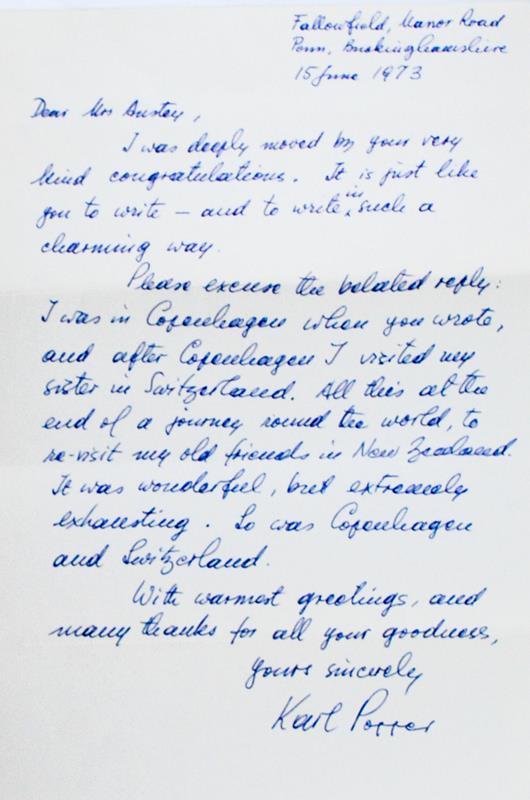 Fallowfield, Manor Road
Penn, Buckinghamshire
15 June 1973
Dear Mrs Anstey,
I was deeply moved by your very
kind congratulations. It is just like
you to write – and to write in such a
charming way.
Please excuse the belated reply:
I was in Copenhagen when you wrote,
and after Copenhagen I visited my
sister in Switzerland. All this at the
end of a journey round the world, to
re-visit my old friends in New Zealand.
It was wonderful, but extremely
exhausting. So was Copenhagen
and Switzerland.
With warmest greetings, and
many thanks for all your goodness,
yours sincerely
Karl Popper